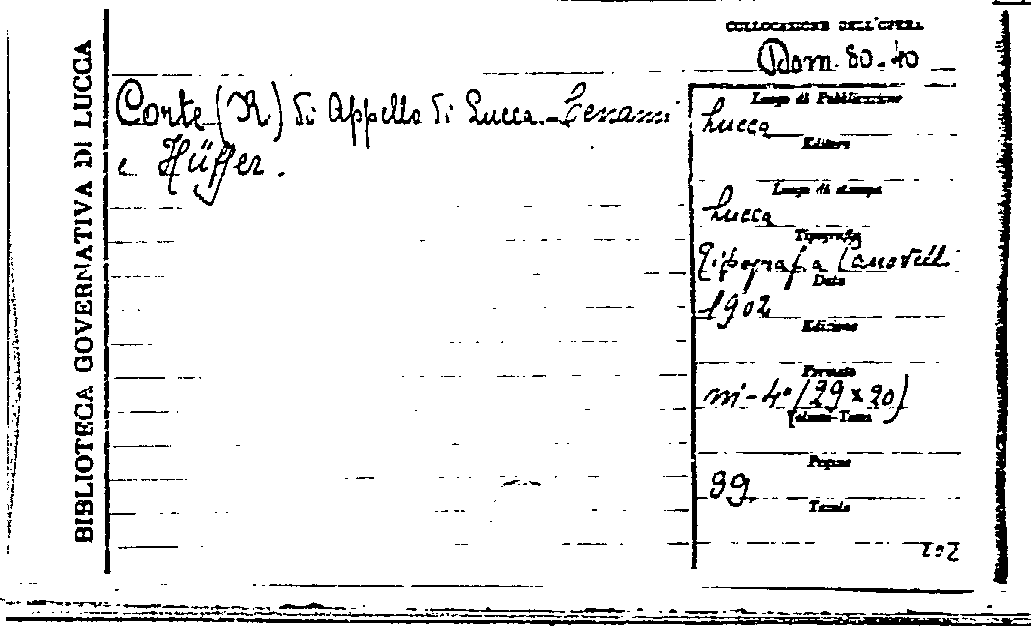 BIBLIOTECA GOVERNATIVA DI LUCCA
COLLOCAZIONE DELL'OPERA
Dom. 80.40
Corte (R) di Appello di Lucca. - Cenami
e Hüffer.
Luogo di Pubblicazione
Lucca
Editore
Luogo di stampa
Lucca
Tipografia
Tipografia Canovetti
Data
1902
Edizione
Formato
in-4° (29 x 20)
Volumi-Tomi
Pagine
89.
Tavole
202